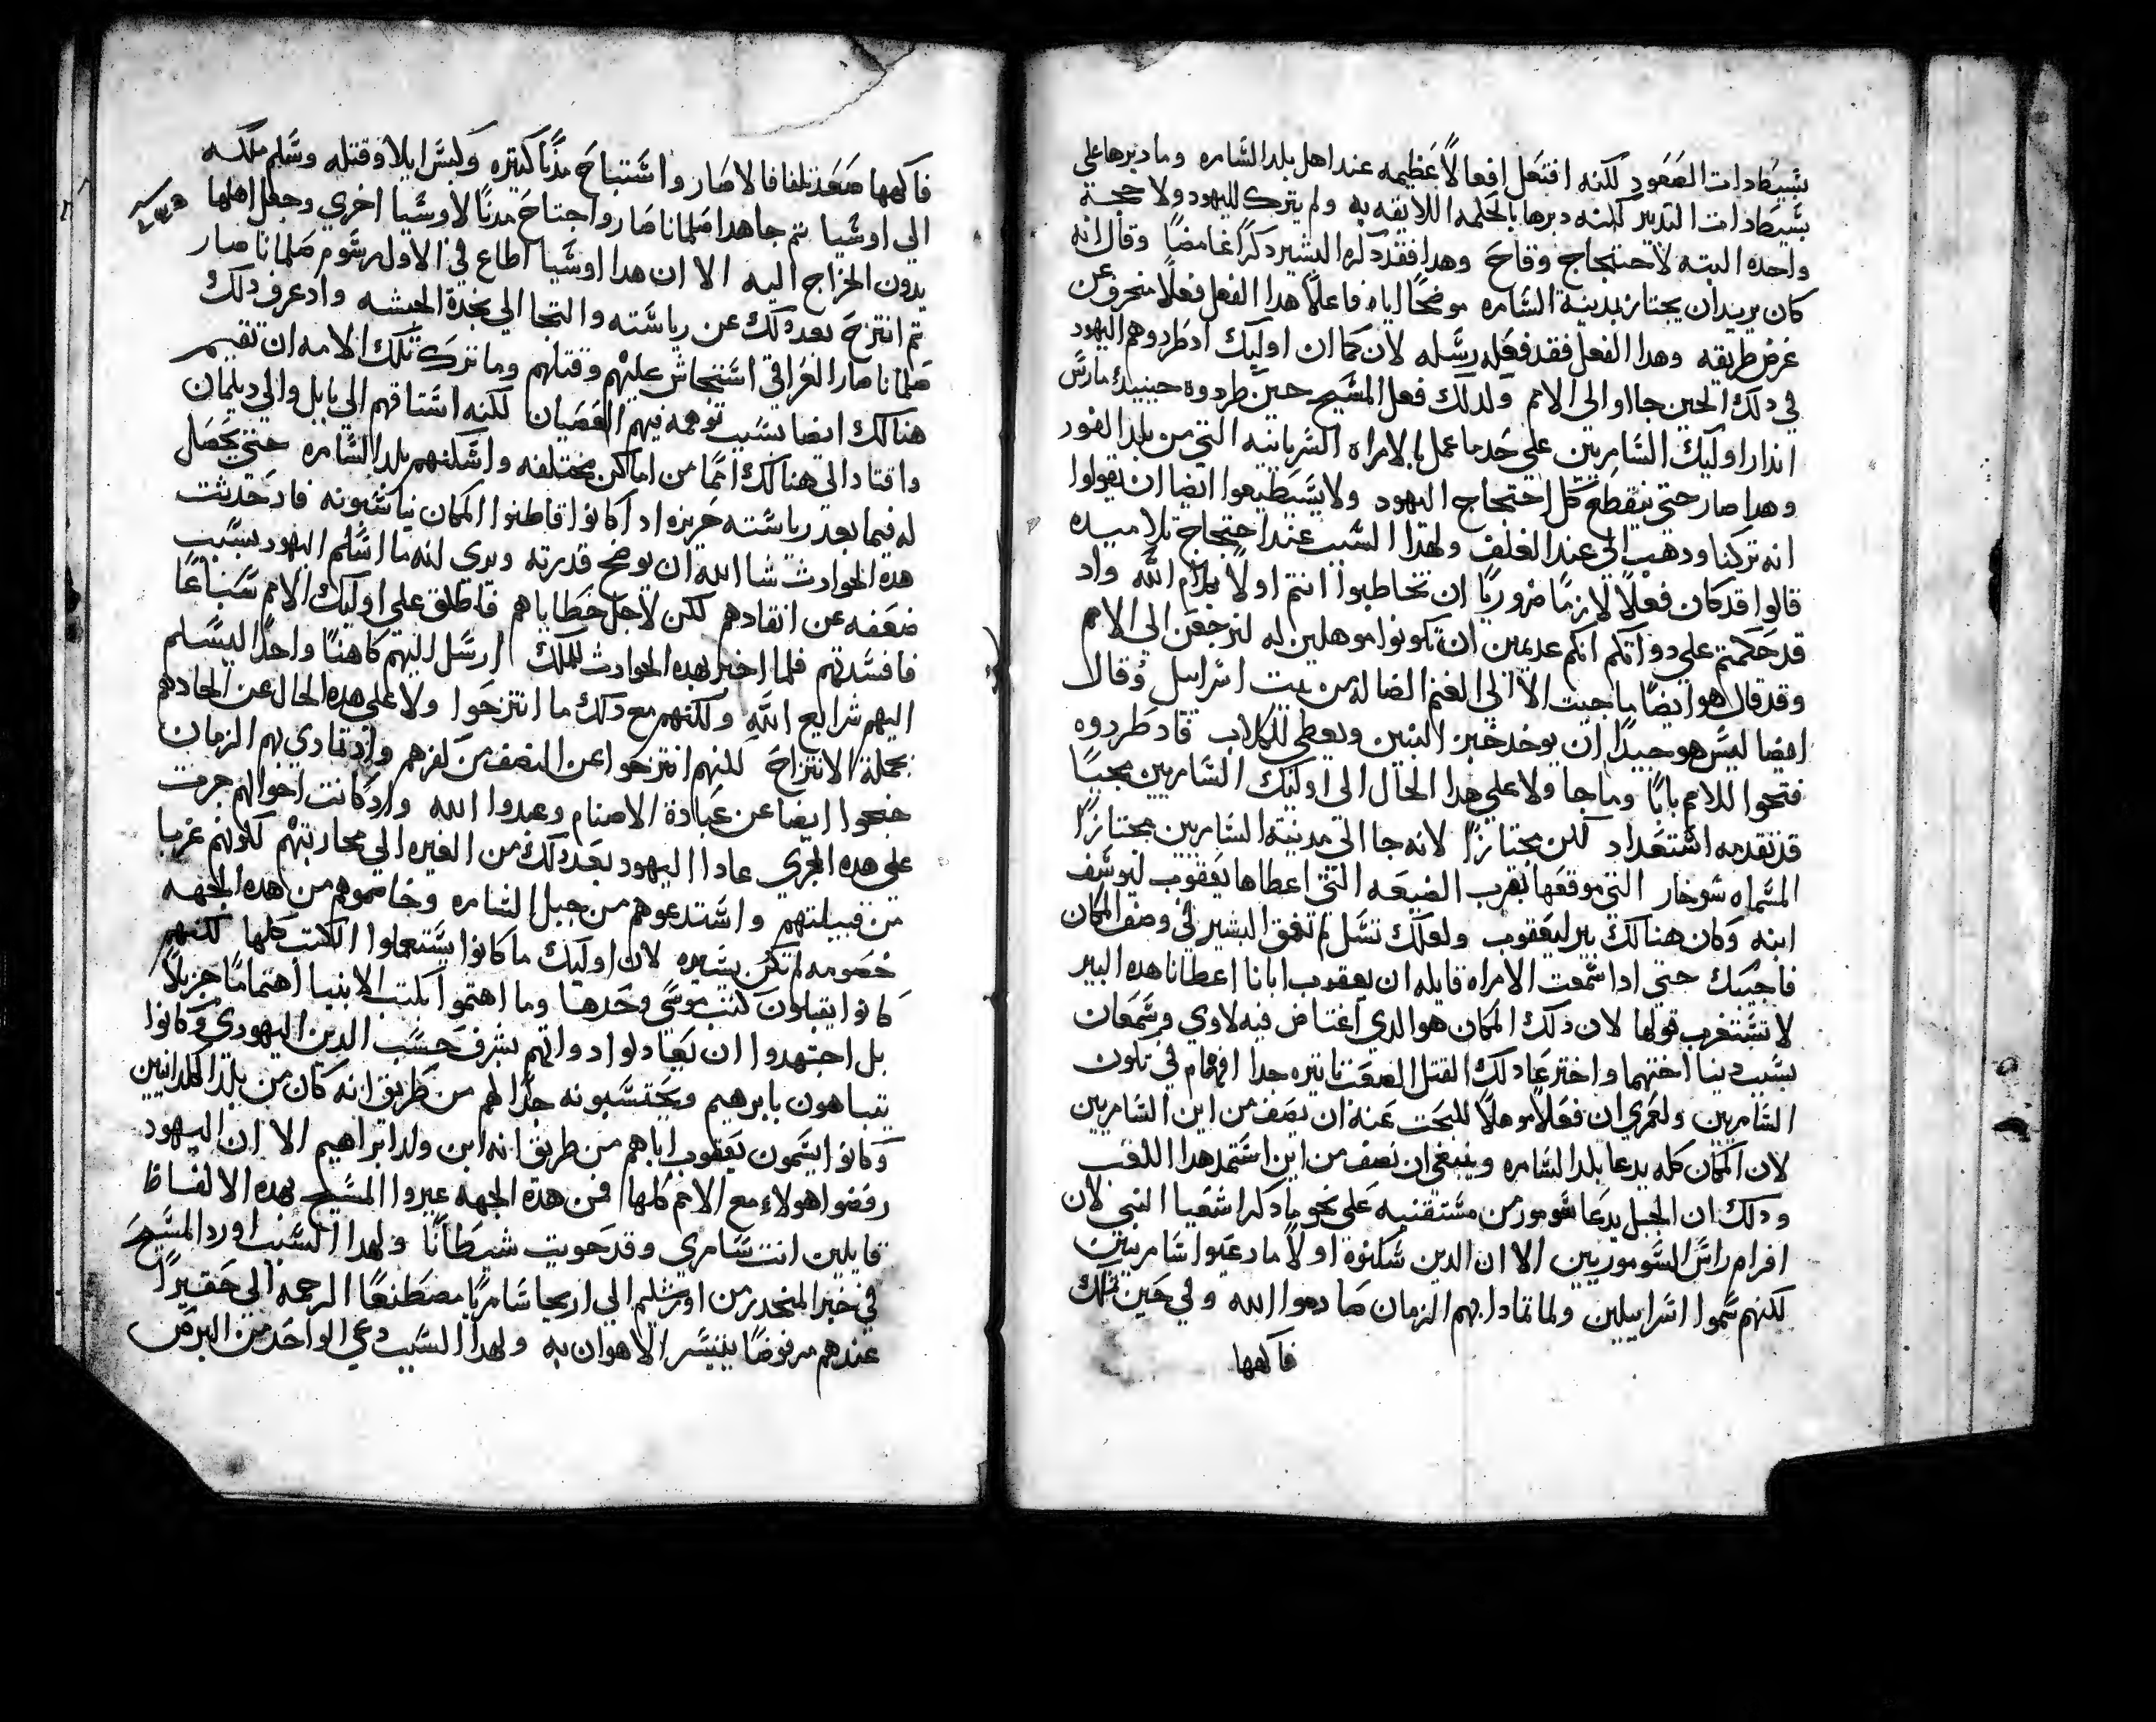 بسيطادات الصعود لكنه افتعل افعالاً عظيمه عند اهل بلد السامره وما دبرها على
بسيطادات التدبير لكنه دبرها بالحكمه اللايقه به ولم يترك لليهود ولا حجة
واحده البته لاحتجاج وقاح وهدا فقد دكره البشير دكراً غامضاً وقال انه
كان يريد ان يجتاز بمدينة السامره موضحاً اياه فاعلاً هدا الفعل فعلاً منحرف عن
غرض طريقه وهدا الفعل فقد فعله رسله لان كما ان اوليك اد طردوهم اليهود
في دلك الحين جااوا الى الامم ولدلك فعل المسيح حين طردوه حينيد مارس
اندار اوليك السامريين على حد ما عمل بالامراه السريانيه التي من بلد الفور
وهدا صار حتى ينقطع كل احتجاج اليهود ولا يستطيعوا ايضا ان يقولوا
انه تركنا ودهب الى عند الغلف ولهدا السبب عند احتجاج تلاميده
قالوا قد كان فعلاً لازماً ضرورياً ان تخاطبوا انتم اولاً بكلام الله واد
قد حكمتم على دواتكم انكم عديمين ان تكونوا موهلين له لنرجعن الى الامم
وقد قال هو ايضاً ما جيت الا الى الغنم الضاله من بيت اسراييل وقال
ايضا ليس هو جيداً ان يوخد خبز البنين ويعطى للكلاب فاد طردوه
فتحوا للامم باباً وما جا ولا على هدا الحال الى اوليك السامريين مجيباً
قد تقدمه استعداد لكن مجتازاً لانه جا الى مدينة السامريين مجتازاً
المسماه سوخار التي موقعها بقرب الضيعه التي اعطاها يعقوب ليوسف
ابنه وكان هنالك بير ليعقوب ولعلك تسل لم تعمق البشير في وصف المكان
فاجيبك حتى ادا سمعت الامراه قايله ان يعقوب ابانا اعطانا هده البير
لا تستغرب قولها لان دلك المكان هو الدي اغتاض فيه لاوي وسمعان
بسبب دينا اختهما واخترعا دلك القتل الصعب تاتيره جدا افهمام في تكون
السامريين ولعمري ان فعلاً موهلاً للبحث عنه ان نصف من اين السامريين
لان المكان كله يدعا بلد السامره وينبغي ان نصف من اين استمد هدا اللقب
ودلك ان الجبل يدعا شومور من مستقنيه على نحو ما دكر اشعيا النبي لان
افرام راس الشوموريين الا ان الدين سكنوه اولاً ما دعيوا سامريين
لكنهم سموا اسراييلين ولما تمادا بهم الزمان صادموا الله وفي حين تملك
فاكهها
فاكهها صعد تلغا فالاصار واستباح مدناً كتيره ولبس ايلا وقتله وسلم ملكه
الي اوشيا تم جاهدا صلمانا صار واجتاح مدناً لاوشيا اخري وجعل اهلها
يدون الخراج اليه الا ان هدا اوشيا اطاع في الاول رسوم صلمانا صار
تم انتزح بعد دلك عن رياسته والتجا الي نجدة الحبشه واد عرف دلك
صلمانا صار العراقي استجاش عليهم وقتلهم وما ترك تلك الامه ان تقيم
هنالك ايضا بسبب توهمه فيهم العصيان لكنه استاقهم الي بابل والي ديلمان
واقتاد الي هنالك امماً من اماكن مختلفه واسكنهم بلد السامره حتى يحصل
له فيما بعد رياسته حريزه اد كانوا قاطنوا المكان يناسبونه فاد حدثت
هده الحوادث شا الله ان يوضح قدرته ويري انه ما اسلم اليهود بسبب
ضعفه عن انقادهم لكن لاجل خطاياهم فاطلق على اوليك الامم سباعاً
فافسدتهم فلما اخبر بهده الحوادث للملك ارسل اليهم كاهناً واحداً ليسلم
اليهم شرايع الله ولكنهم مع دلك ما انتزحوا ولا على هده الحال عن الحادهم
بجملة الانتزاح لكنهم انتزحوا عن النصف من كفرهم واد تمادي بهم الزمان
جنحوا ايضا عن عبادة الاصنام وعبدوا الله واد كانت احوالهم جرت
على هده المجري عادا اليهود بعد دلك من الغيره الي محاربتهم لكونهم غربا
من قبيلتهم واستدعوهم من جبل السامره وخاصموهم من هده الجهه
خصومه لم تكن يسيره لان اوليك ما كانوا يستعملوا الكتب كلها لكنهم
كانوا يقبلون كتب موسى وحدها وما اهتموا بكتب الانبيا اهتماماً جزيلاً
بل اجتهدوا ان يعادلوا دواتهم بشرف حسب الدين اليهودي وكانوا
يتباهون بابرهيم ويحتسبونه جداً لهم من طريق انه كان من بلد الكلدانيين
وكانوا يسمون يعقوب اباهم من طريق انه ابن ولد ابراهيم الا ان اليهود
رفضوا هولاء مع الامم كلها فمن هدة الجهه عيروا المسيح بهده الالفاظ
قايلين انت سامري وقد حويت شيطاناً ولهدا السبب اورد المسيح
في خبر المنحدر من اورشليم الي اريحا سامرياً مصطنعاً الرحمه الي حقيراً
عندهم مرفوضاً يتيسر الاهوان به ولهدا السبب دعي الواحد من البرص